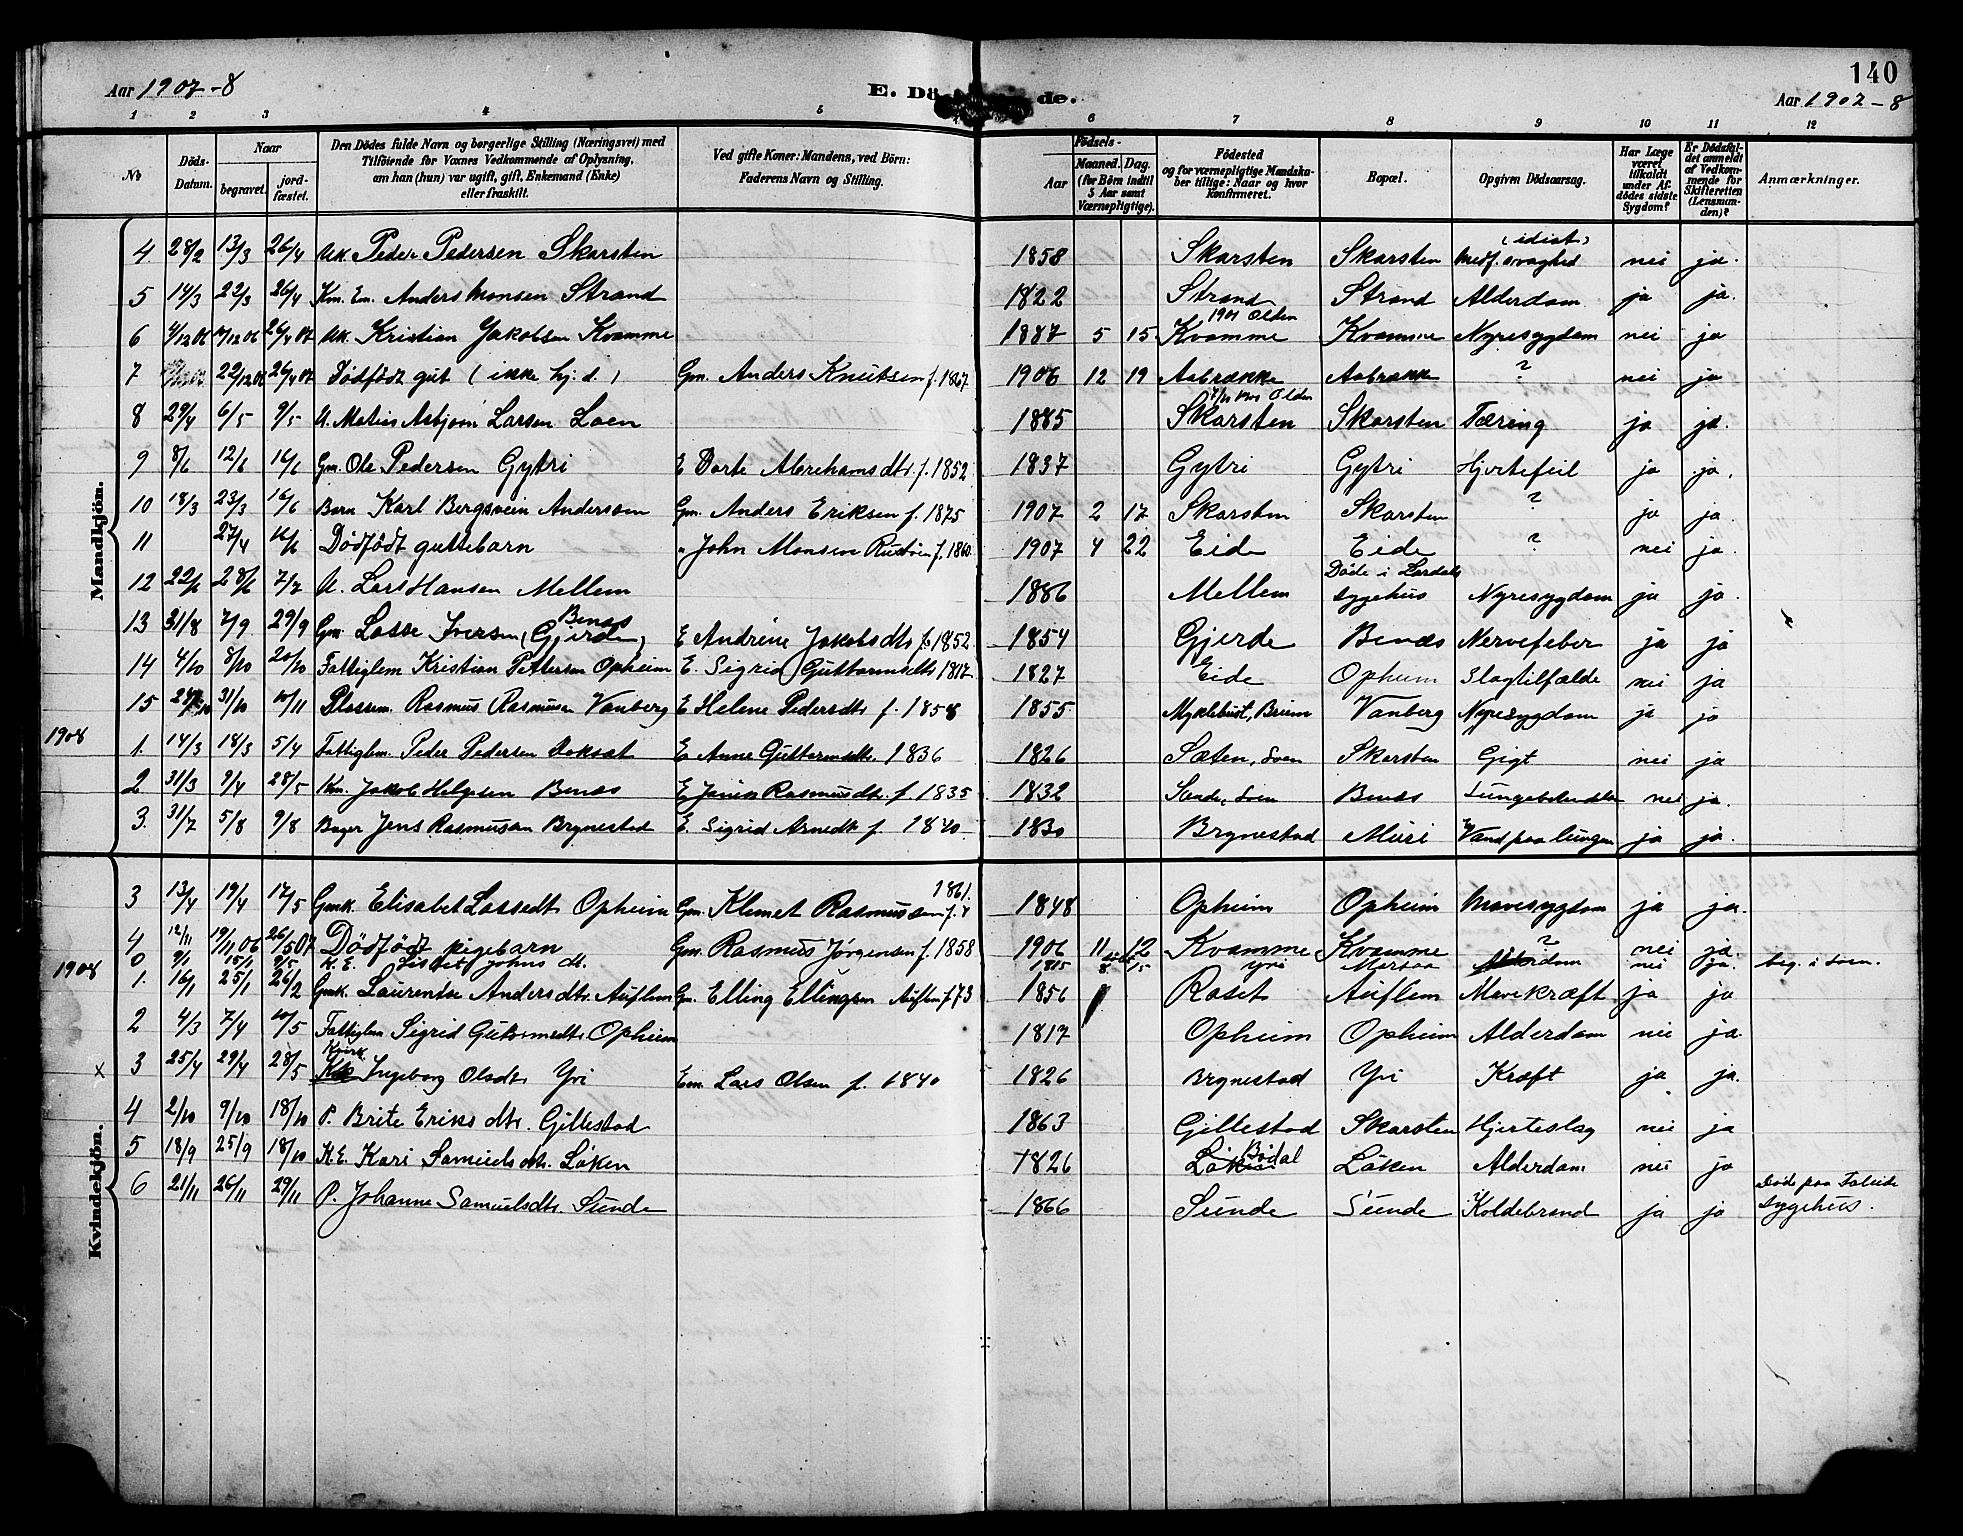 Aar 1907-8
E. Dö de.
140
Aar 1907-8
1 2 3 4 5 6 7 8 9 10 11 12
No
Döds-Datum.
Naar
begravet.
jordfæstet.
Den Dödes fulde Navn og borgerlige Stilling (Næringsvei) med Tilföiende for Voxnes Vedkommende af Oplysning, om han (hun) var ugift, gift, Enkemand (Enke) eller fraskilt.
Ved gifte Koner: Mandens, ved Börn: Faderens Navn og Stilling.
Födsels-
Aar
Maaned. Dag.
(for Börn indtil 5 Aar samt Værnepligtige).
Födested og for værnepligtige Mandskaber tillige: Naar og hvor Konfirmeret.
Bopæl.
Opgiven Dödsaarsag.
Har Læge været tilkaldt under Afdödes sidste Sygdom?
Er Dödsfaldet anmeldt af Vedkommende for Skifteretten (Lensmanden)?
Anmærkninger.
Mandkjön.
4. 28/2 13/3 26/4 Uk. Peder Pedersen Skarsten 1858 Skarsten Skarsten Medf. svaghed (idiot) nei ja.
5 14/3 22/3 26/4 Km. Em. Anders Monsen Strand 1822 Strand Strand Alderdom ja ja.
6 4/12 06 /12 06 26/4 07 Uk. Kristian Jakobsen Kvamme 1887 5 15 Kvamme 1901 Olden Kvamme Nyresygdom nei ja
7 22/12 06 26/4 07 Dödfödt gut (ikke hj. d.) Gm. Anders Knutsen f. 1867 1906 12 19 Aabrække Aabrække ? nei ja
8 29/4 6/5 9/5 U. Matias Asbjörn Larsen Loen 1885 Skarsten Olden Skarsten Tæring ja ja.
9 8/6 12/6 16/6 Gm. Ole Pedersen Gytri E Dorte Abrehamsdtr. f. 1852 1837 Gytri Gytri Hjertefeil ja ja.
10 18/3 23/3 16/6 Barn Karl Bergsvein Andersen Gm. Anders Eriksen f. 1875 1907 2 17 Skarsten Skarsten ? ja ja.
11 27/4 16/6 Dödfödt guttebarn " John Monsen Rustöen f. 1860 1907 4 22 Eide Eide ? nei ja.
12 22/6 28/6 7/7 U. Lars Hansen Mellem 1886 Mellem Döde i Lærdals sygehus Nyresygdom ja ja.
13 31/8 7/9 29/9 Gm. Lasse Iversen (Gjerde) Benæs E Andrine Jakobsdtr f. 1852 1854 Gjerde Benæs Nervefeber ja ja
14 4/10 8/10 20/10 Fattiglem Kristian Pettersen Opheim E. Sigrid Guttormsdtr 1817 1827 Eide Opheim Slagtilfælde nei ja
15 31/10 10/11 Plassm. Rasmus Rasmusen Vanberg E Helene Pedersdtr f. 1858 1855 Myklebust, Breim Vanberg Nyresygdom ja ja
1908
1. 14/3 18/3 5/4 Fattiglm. Peder Pedersen Aoksat E Anne Guttormsdtr. 1836 1826 Sæten, Loen Skarsten Gigt nei ja
2 31/3 9/4 28/5 Km. Jakob Helgesen Benæs E Janike Rasmusdtr. f 1835 1832 Sande, Loen Benæs Lungebetændelse nei ja.
3. 31/7 5/8 9/8 Bager Jens Rasmusen Brynestad E. Sigrid Arnedtr f. 1840 1830 Brynestad Muri Vand paa lungen ja ja.
Kvindekjön.
3 13/4 19/4 17/5 Gmk. Elisabet Lassedtr Opheim Gm. Klemet Rasmusen f. 1861 1848 Opheim Opheim Mavesygdom ja ja.
4 12/11 19/11 06 26/5 07 Dödfödt pigebarn Gm. Rasmus Jörgensen f. 1858 1906 11 12 Kvamme Kvamme ? nei ja.
1908
0 9/1 15/1 2/5 K. E. Lisbet Johns dtr. 1815 8 15 Yri Marsaa Alderdom nei ja. beg. i Loen.
1. 16/1 25/1 26/2 Gmk. Laurentse Andersdtr. Auflem Gm. Elling Ellingsen Auflem f. 73 1856 Roset Auflem Mavekræft ja ja
2 4/3 7/4 10/5 Fattiglm Sigrid Guttormsdtr Opheim 1817 Opheim Opheim Alderdom nei ja.
x 3 25/4 29/4 28/5 Kaark. Ingeborg Olsdtr Yri Em. Lars Olsen f. 1840 1826 Brynestad Yri Kræft ja ja.
4 2/10 9/10 18/10 P. Brite Eriks dtr. Gillestad 1863 Gillestad Skarsten Hjerteslag nei ja
5 18/9 25/9 18/10 K E. Kari Samuels dtr. Löken 1826 Löken Bödal Löken Alderdom nei ja
6 21/11 26/11 29/11 P. Johanne Samuelsdtr. Sunde 1866 Sunde Sunde Koldebrand ja ja Död paa Faleide Sygehus.